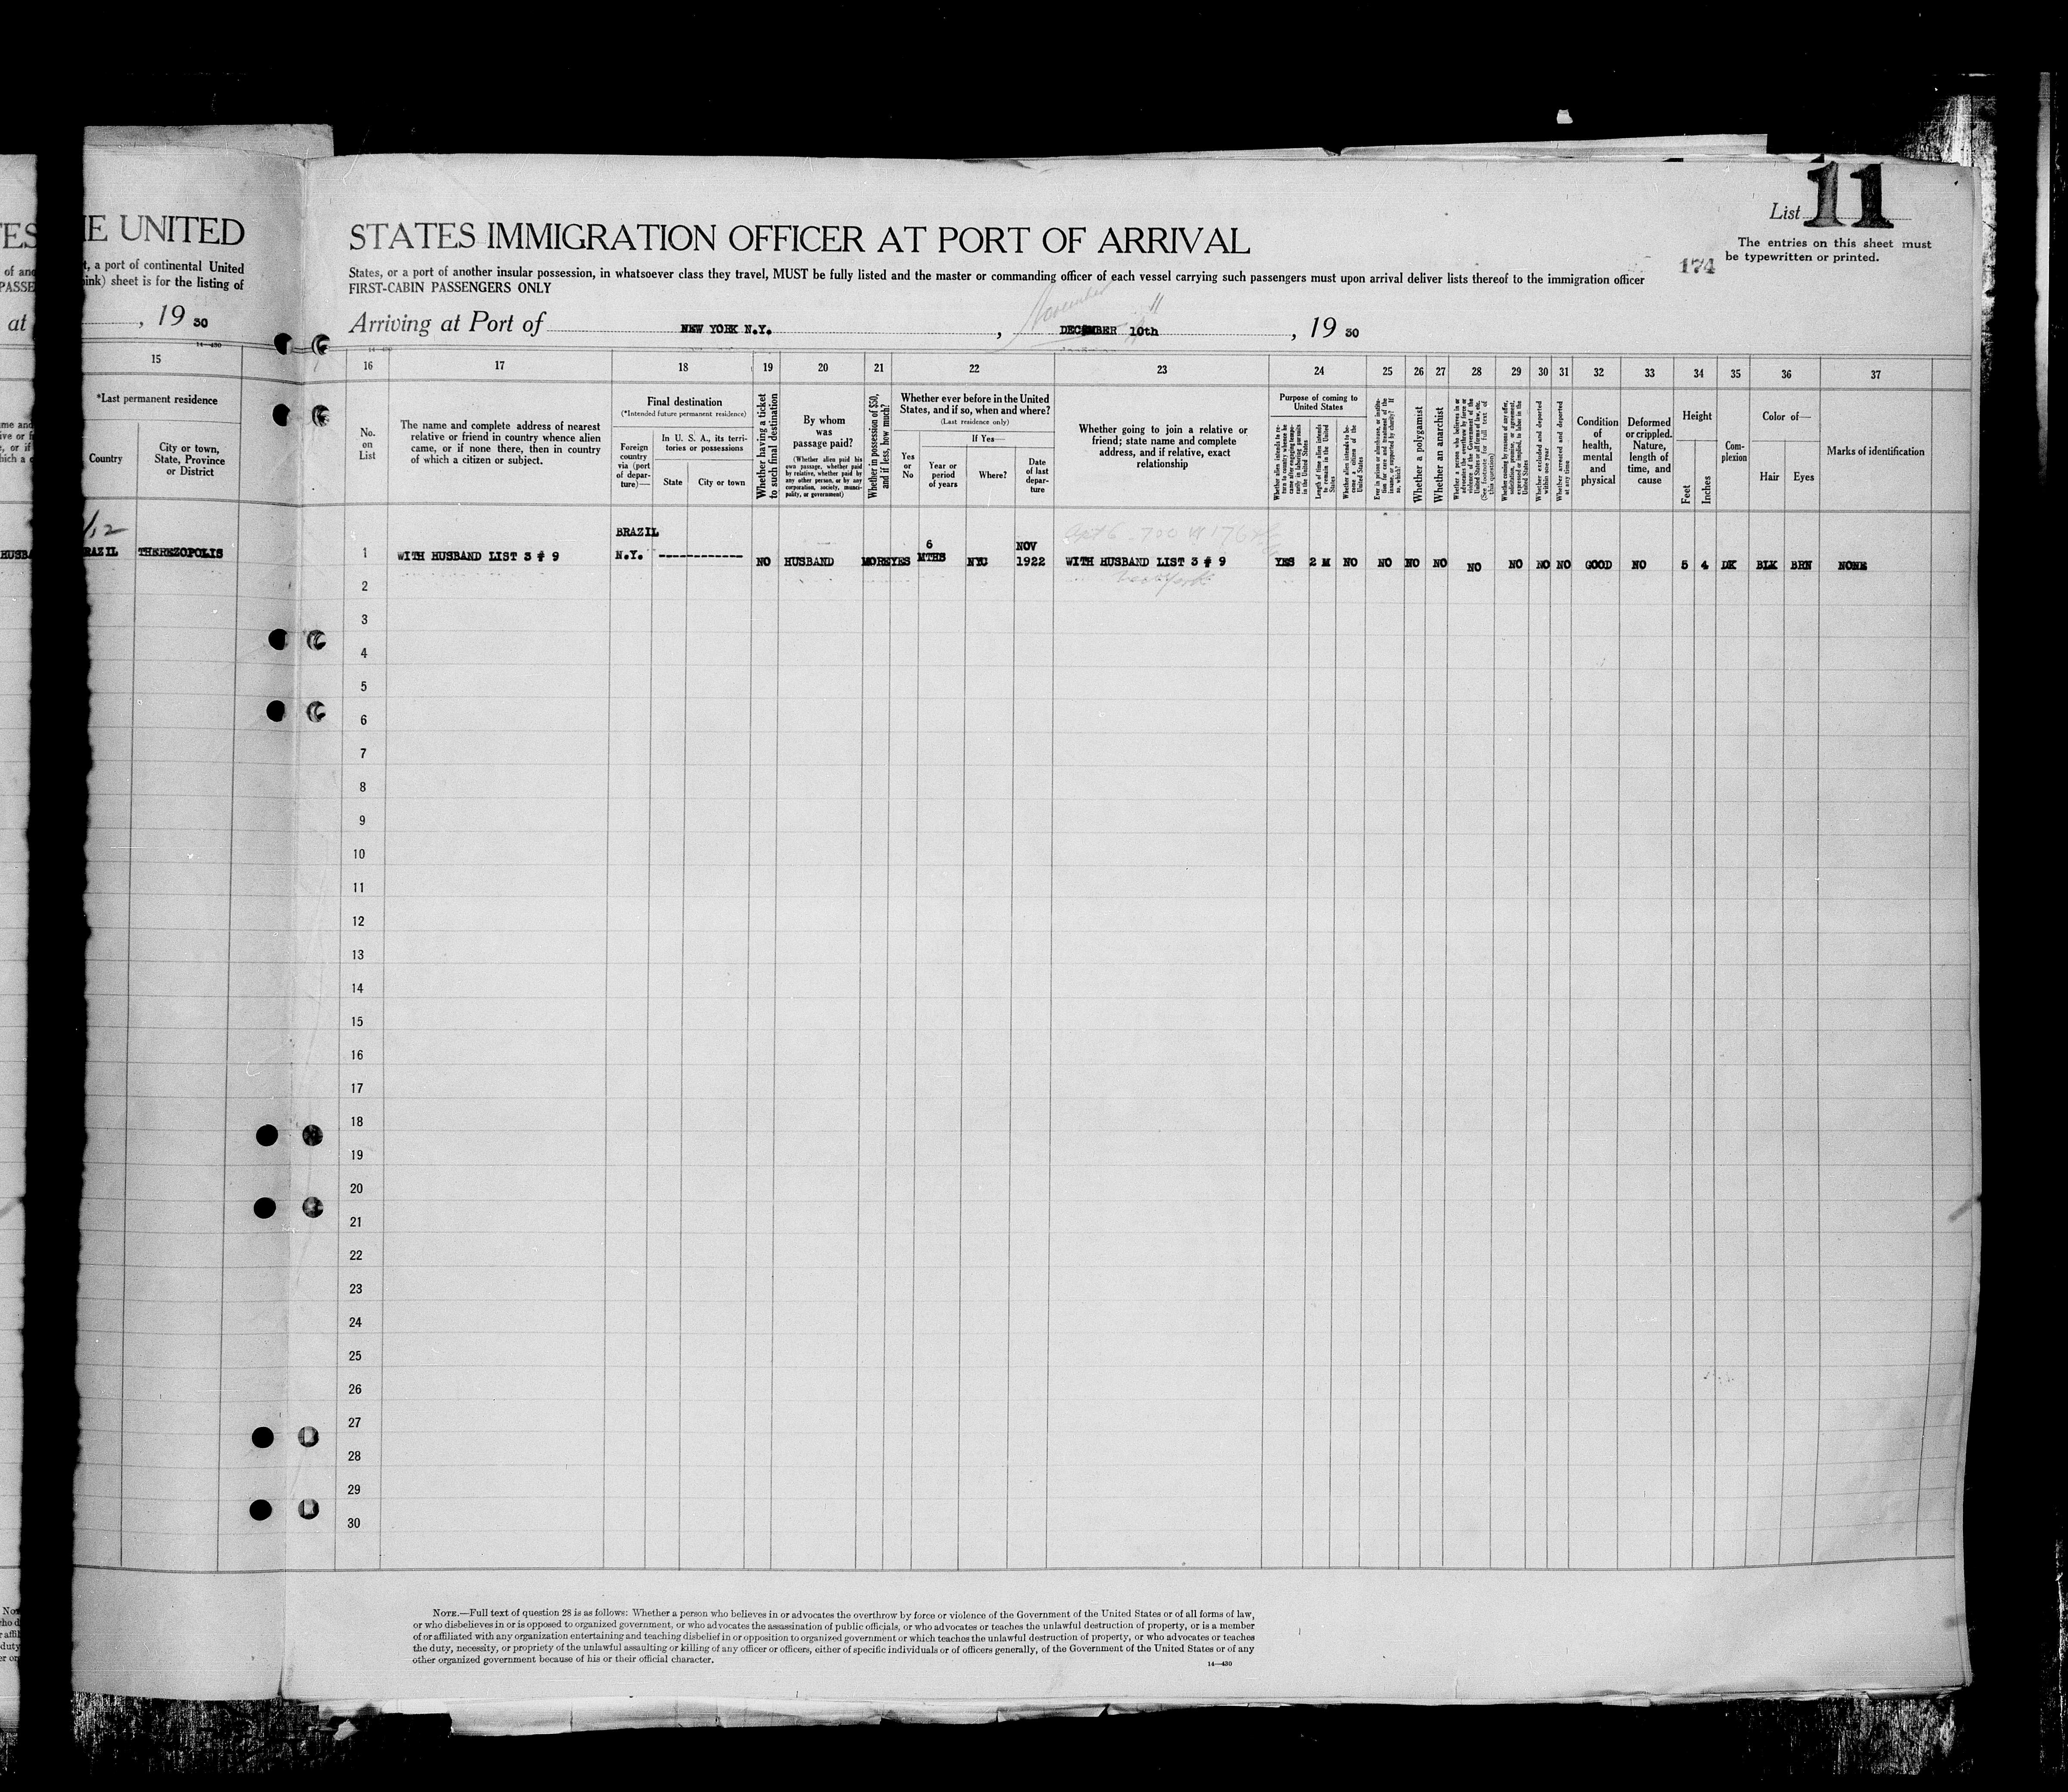 List 11
The entries on this sheet must
be typewritten or printed.
174
TES
IE UNITED
STATES IMMIGRATION OFFICER AT PORT OF ARRIVAL
t, a port of continental United
States, or a port of another insular possession, in whatsoever class they travel, MUST be fully listed and the master or commanding officer of each vessel carrying such passengers must upon arrival deliver lists thereof to the immigration officer
ink) sheet is for the listing of
FIRST-CABIN PASSENGERS ONLY
November 11
at , 19 30
Arriving at Port of NEW YORK N.Y. , DECEMBER 10th , 19 30
14—430
15 16 17 18 19 20 21 22 23 24 25 26 27 28 29 30 31 32 33 34 35 36 37
*Last permanent residence
Country
City or town,
State, Province
or District
No.
on
List
The name and complete address of nearest
relative or friend in country whence alien
came, or if none there, then in country
of which a citizen or subject.
Final destination
(*Intended future permanent residence)
Foreign
country
via (port
of depar-
ture)—
In U. S. A., its terri-
tories or possessions
State
City or town
Whether having a ticket
to such final destination
By whom
was
passage paid?
(Whether alien paid his
own passage, whether paid
by relative, whether paid by
any other person, or by any
corporation, society, munici-
pality, or government)
Whether in possession of $50,
and if less, how much?
Whether ever before in the United
States, and if so, when and where?
(Last residence only)
Yes
or
No
If Yes—
Year or
period
of years
Where?
Date
of last
depar-
ture
Whether going to join a relative or
friend; state name and complete
address, and if relative, exact
relationship
Purpose of coming to
United States
Whether alien intends to re-
turn to country whence he
came after engaging tempo-
rarily in laboring pursuits
in the United States
Length of time alien intends
to remain in the United
States
Whether alien intends to be-
come a citizen of the
United States
Ever in prison or almshouse, or institu-
tion for care and treatment of the
insane, or supported by charity? If
so, which?
Whether a polygamist
Whether an anarchist
Whether a person who believes in or
advocates the overthrow by force or
violence of the Government of the
United States or all forms of law, etc.
(See footnote for full text of
this question)
Whether coming by reason of any offer,
solicitation, promise, or agreement,
expressed or implied, to labor in the
United States
Whether excluded and deported
within one year
Whether arrested and deported
at any time
Condition
of
health,
mental
and
physical
Deformed
or crippled.
Nature,
length of
time, and
cause
Height
Feet
Inches
Com-
plexion
Color of—
Hair
Eyes
Marks of identification
HUSBA
RAZIL THEREZOPOLIS
1 WITH HUSBAND LIST 3 # 9 BRAZIL N.Y. ------------ NO HUSBAND MORE YES 6 MTHS NYC NOV 1922 WITH HUSBAND LIST 3 # 9 YES 2 M NO NO NO NO NO NO NO NO GOOD NO 5 4 DK BLK BRN NONE
New York
2
3
4
5
6
7
8
9
10
11
12
13
14
15
16
17
18
19
20
21
22
23
24
25
26
27
28
29
30
NOTE.—Full text of question 28 is as follows: Whether a person who believes in or advocates the overthrow by force or violence of the Government of the United States or of all forms of law,
or who disbelieves in or is opposed to organized government, or who advocates the assassination of public officials, or who advocates or teaches the unlawful destruction of property, or is a member
of or affiliated with any organization entertaining and teaching disbelief in or opposition to organized government or which teaches the unlawful destruction of property, or who advocates or teaches
the duty, necessity, or propriety of the unlawful assaulting or killing of any officer or officers, either of specific individuals or of officers generally, of the Government of the United States or of any
other organized government because of his or their official character.
14—430